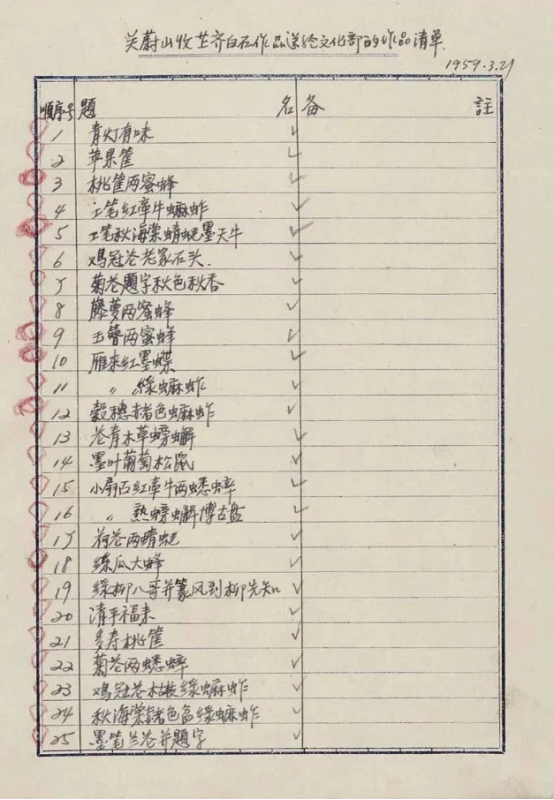 关蔚山收生齐白石作品送给文化部的作品清单
1959.3.21
順序号 題 名 备 註
1 青灯有味
2 苹果筐
3 桃筐两蜜蜂
4 工笔红牵牛蟈蚱
5 工笔秋海棠蜻蜓墨天牛
6 鸡冠花老家石头.
7 菊花題字秋色秋香
8 藤萝两蜜蜂
9 玉簪两蜜蜂
10 雁来红墨蝶
11 〃 綠蟈蚱
12 穀穗赭色蟈蚱
13 苍青木草螃蟹
14 墨叶葡萄松鼠
15 小扇石红牵牛两蟋蟀
16 〃 熟螃蟹博古盘
17 荷花两蜻蜓
18 絲瓜大蜂
19 綠柳八哥并篆风到柳先知
20 清平福来
21 多寿桃筐
22 菊花两蟋蟀
23 鸡冠花枯枝綠蟈蚱
24 秋海棠赭色 綠蟈蚱
25 墨笔兰花并題字